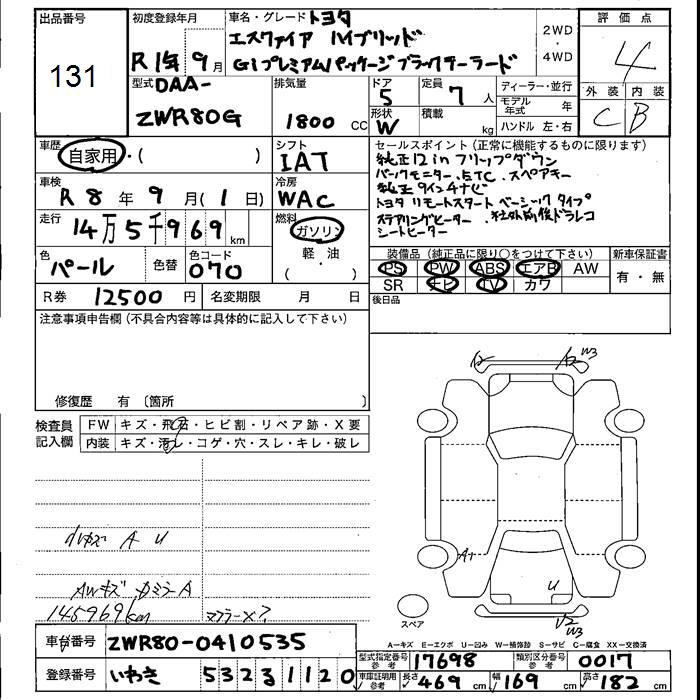 出品番号
131
初度登録年月
R 1年 9月
車名・グレード トヨタ
エスクァイア ハイブリッド
Gi プレミアムパッケージ ブラックテーラード
2WD
・
4WD
評価点
4
外装 内装
C B
型式 DAA-
ZWR80G
排気量
1800 CC
ドア
5
形状
W
定員
7 人
積載
kg
ディーラー・並行
モデル年式 年
ハンドル 左・右
車歴
自家用・( )
シフト
IAT
車検
R 8 年 9 月 ( 1 日)
冷房
WAC
走行
14万5千969 km
燃料
ガソリン
軽・油
( )
色
パール
色替
色コード
070
R券 12500 円
名変期限 月 日
セールスポイント (正常に機能するものに限ります)
純正12inフリップダウン
バックモニター、ETC、スペアキー
純正9インチナビ
トヨタ リモートスタート ベーシック タイプ
ステアリングヒーター、社外前後ドラレコ
シートヒーター
装備品 (純正品に限り○をつけて下さい)
PS PW ABS エアB AW
SR ナビ TV カワ
新車保証書
有・無
後日品
注意事項申告欄 (不具合内容等は具体的に記入して下さい)
修復歴 有 〔箇所 〕
検査員
記入欄
FW キズ・飛石・ヒビ割・リペア跡・X要
内装 キズ・汚レ・コゲ・穴・スレ・キレ・破レ
小キズ A U
AWキズ カミラーA
145969km
マフラーX?
W3
A1
U
U2
W3
スペア
A=キズ E=エクボ U=凹み W=補修跡 S=サビ C=腐食 XX=交換済
車台番号 ZWR80-0410535
登録番号 いわき 532 る 1120
型式指定番号 参考 17698
類別区分番号 参考 0017
車庫証明用 参考 長さ 469 cm 幅 169 cm 高さ 182 cm